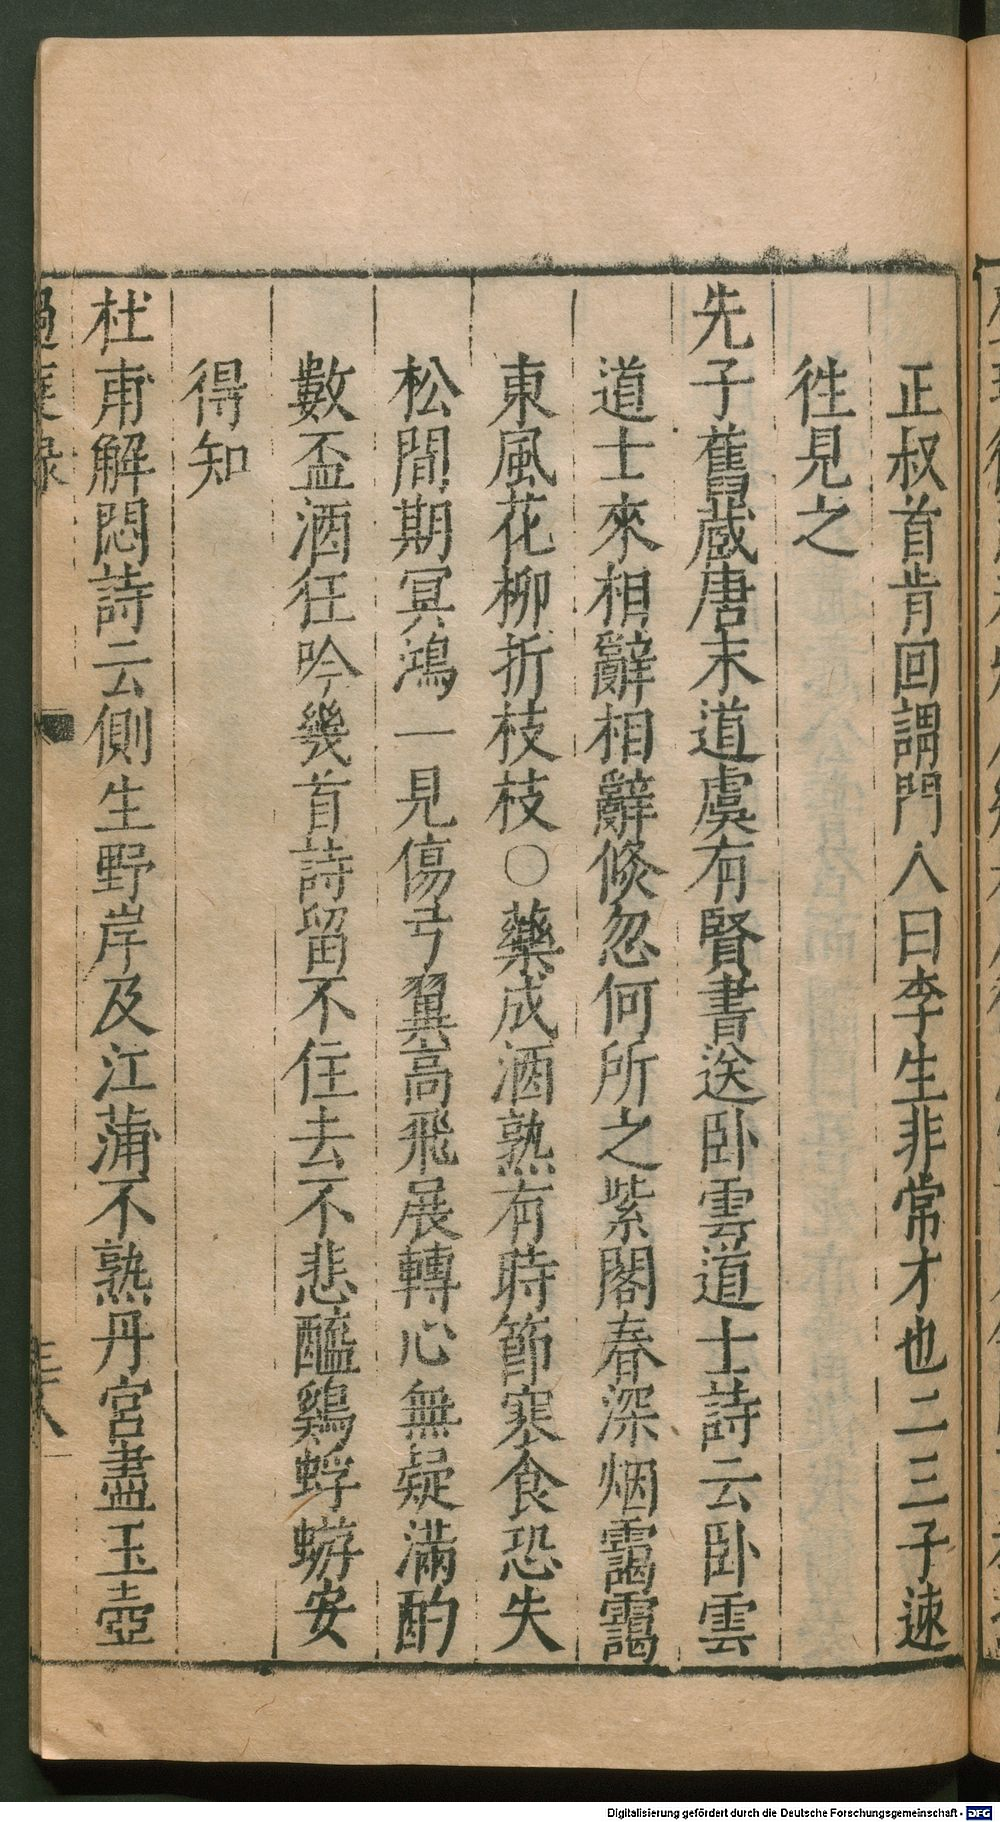 正叔首肯回謂門人曰李生非常才也二三子速
徃見之
先子舊蔵唐末道虞有賢書送卧雲道士詩云卧雲
道士來相辭相辭倐忽何所之紫閣春深烟靄靄
東風花柳折枝枝〇藥成酒熟有時節寒食恐失
松間期冥鴻一見傷弓翼高飛展轉心無疑滿酌
數盃酒任吟幾首詩留不住去不悲醯鷄蜉蝣安
得知
杜甫解悶詩云側生野岸及江蒲不熟丹宮盡玉壺
過庭録
三十八
Digitalisierung gefördert durch die Deutsche Forschungsgemeinschaft - DFG